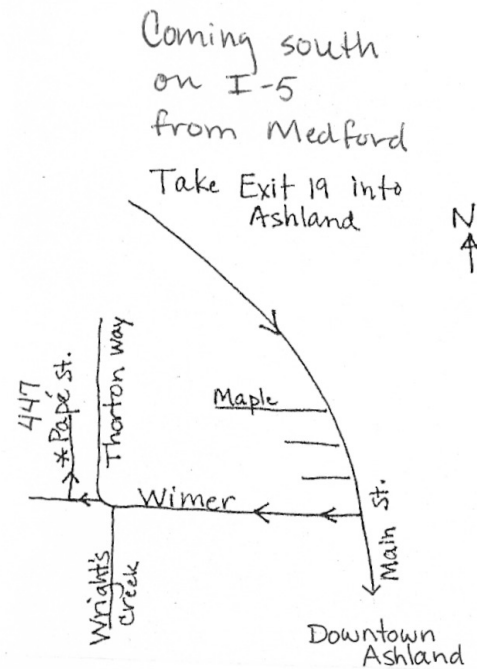 Coming south
on I-5
from Medford
Take Exit 19 into
Ashland
N
Maple
Thorton Way
447
* Papé St.
Wimer
Main St.
Wright's
Creek
Downtown
Ashland